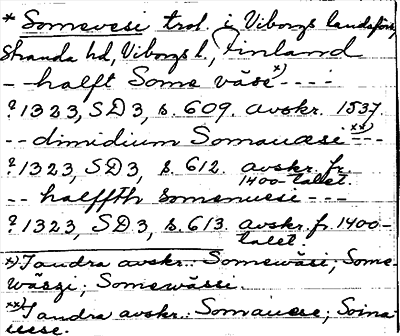 * Somevesi trol. i Viborgs landsförs,
Stranda hd, Viborgs l., Finland
- - halft Some väsi *) - - - -
? 1323, SD 3, s. 609. avskr. 1537.
- - dimidium Somauæsi **) - -
? 1323, SD 3, s. 612. avskr. fr.
1400-talet.
- - halffth Somenuesi - - -
? 1323, SD 3, s. 613. avskr. fr. 1400-
talet.
*) I andra avskr.: Somewäsi, Some-
wäszi; Somewässi.
**) I andra avskr: Somauese; Soina
uese.